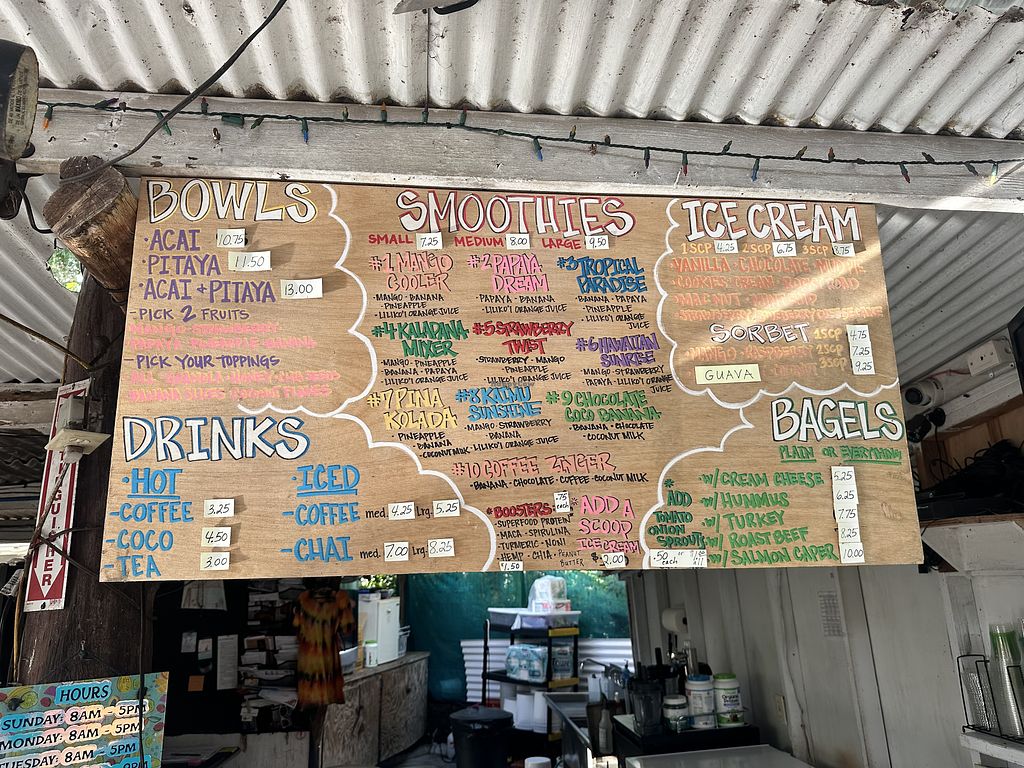 BOWLS
·ACAI 10.75
·PITAYA 11.50
·ACAI + PITAYA 13.00
-PICK 2 FRUITS
MANGO·STRAWBERRY
PAPAYA·PINEAPPLE·BANANA
-PICK YOUR TOPPINGS
DRINKS
·HOT
-COFFEE 3.25
-COCO 4.50
-TEA 3.00
·ICED
-COFFEE med. 4.25 Lrg. 5.25
-CHAI med. 7.00 Lrg. 8.25
SMOOTHIES
SMALL 7.25 MEDIUM 8.00 LARGE 9.50
#1 MANGO
COOLER
·MANGO·BANANA
·PINEAPPLE
·LILIKO'I ORANGE JUICE
#2 PAPAYA
DREAM
·PAPAYA·BANANA
·PINEAPPLE
·LILIKO'I ORANGE JUICE
#3 TROPICAL
PARADISE
·BANANA·PAPAYA
·PINEAPPLE
·LILIKO'I ORANGE
JUICE
#4 KALAPANA
MIXER
·MANGO·PINEAPPLE
·BANANA·PAPAYA
·LILIKO'I ORANGE JUICE
#5 STRAWBERRY
TWIST
·STRAWBERRY·MANGO
·PINEAPPLE
·LILIKO'I ORANGE JUICE
#6 HAWAIIAN
SUNRISE
·MANGO·STRAWBERRY
PAPAYA·LILIKO'I ORANGE
JUICE
#7 PINA
KOLADA
·PINEAPPLE
·BANANA
·COCONUT MILK
#8 KAIMU
SUNSHINE
·MANGO·STRAWBERRY
·BANANA
·LILIKO'I ORANGE JUICE
#9 CHOCOLATE
COCO BANANA
·BANANA·CHOCOLATE
·COCONUT MILK
#10 COFFEE ZINGER
·BANANA·CHOCOLATE·COFFEE·COCONUT MILK
*BOOSTERS .75 each
·SUPERFOOD PROTEIN
·MACA·SPIRULINA
·TURMERIC·NONI
·HEMP·CHIA·PEANUT BUTTER
$1.50
*ADD A
SCOOP
ICE CREAM
$2.00
ICE CREAM
1SCP 4.25 2SCP 6.75 3SCP 8.75
·VANILLA·CHOCOLATE
·COOKIES CREAM
·MAC NUT
SORBET 1SCP 4.75
2SCP 7.25
3SCP 9.25
GUAVA
BAGELS
PLAIN OR EVERYTHING
w/CREAM CHEESE 5.25
w/HUMMUS 6.25
w/TURKEY 7.75
w/ROAST BEEF 8.25
w/SALMON CAPER 10.00
*ADD
TOMATO
ONION
SPROUTS
.50 each
HOURS
SUNDAY: 8AM - 5PM
MONDAY: 8AM - 5PM
TUESDAY: 8AM - 5PM